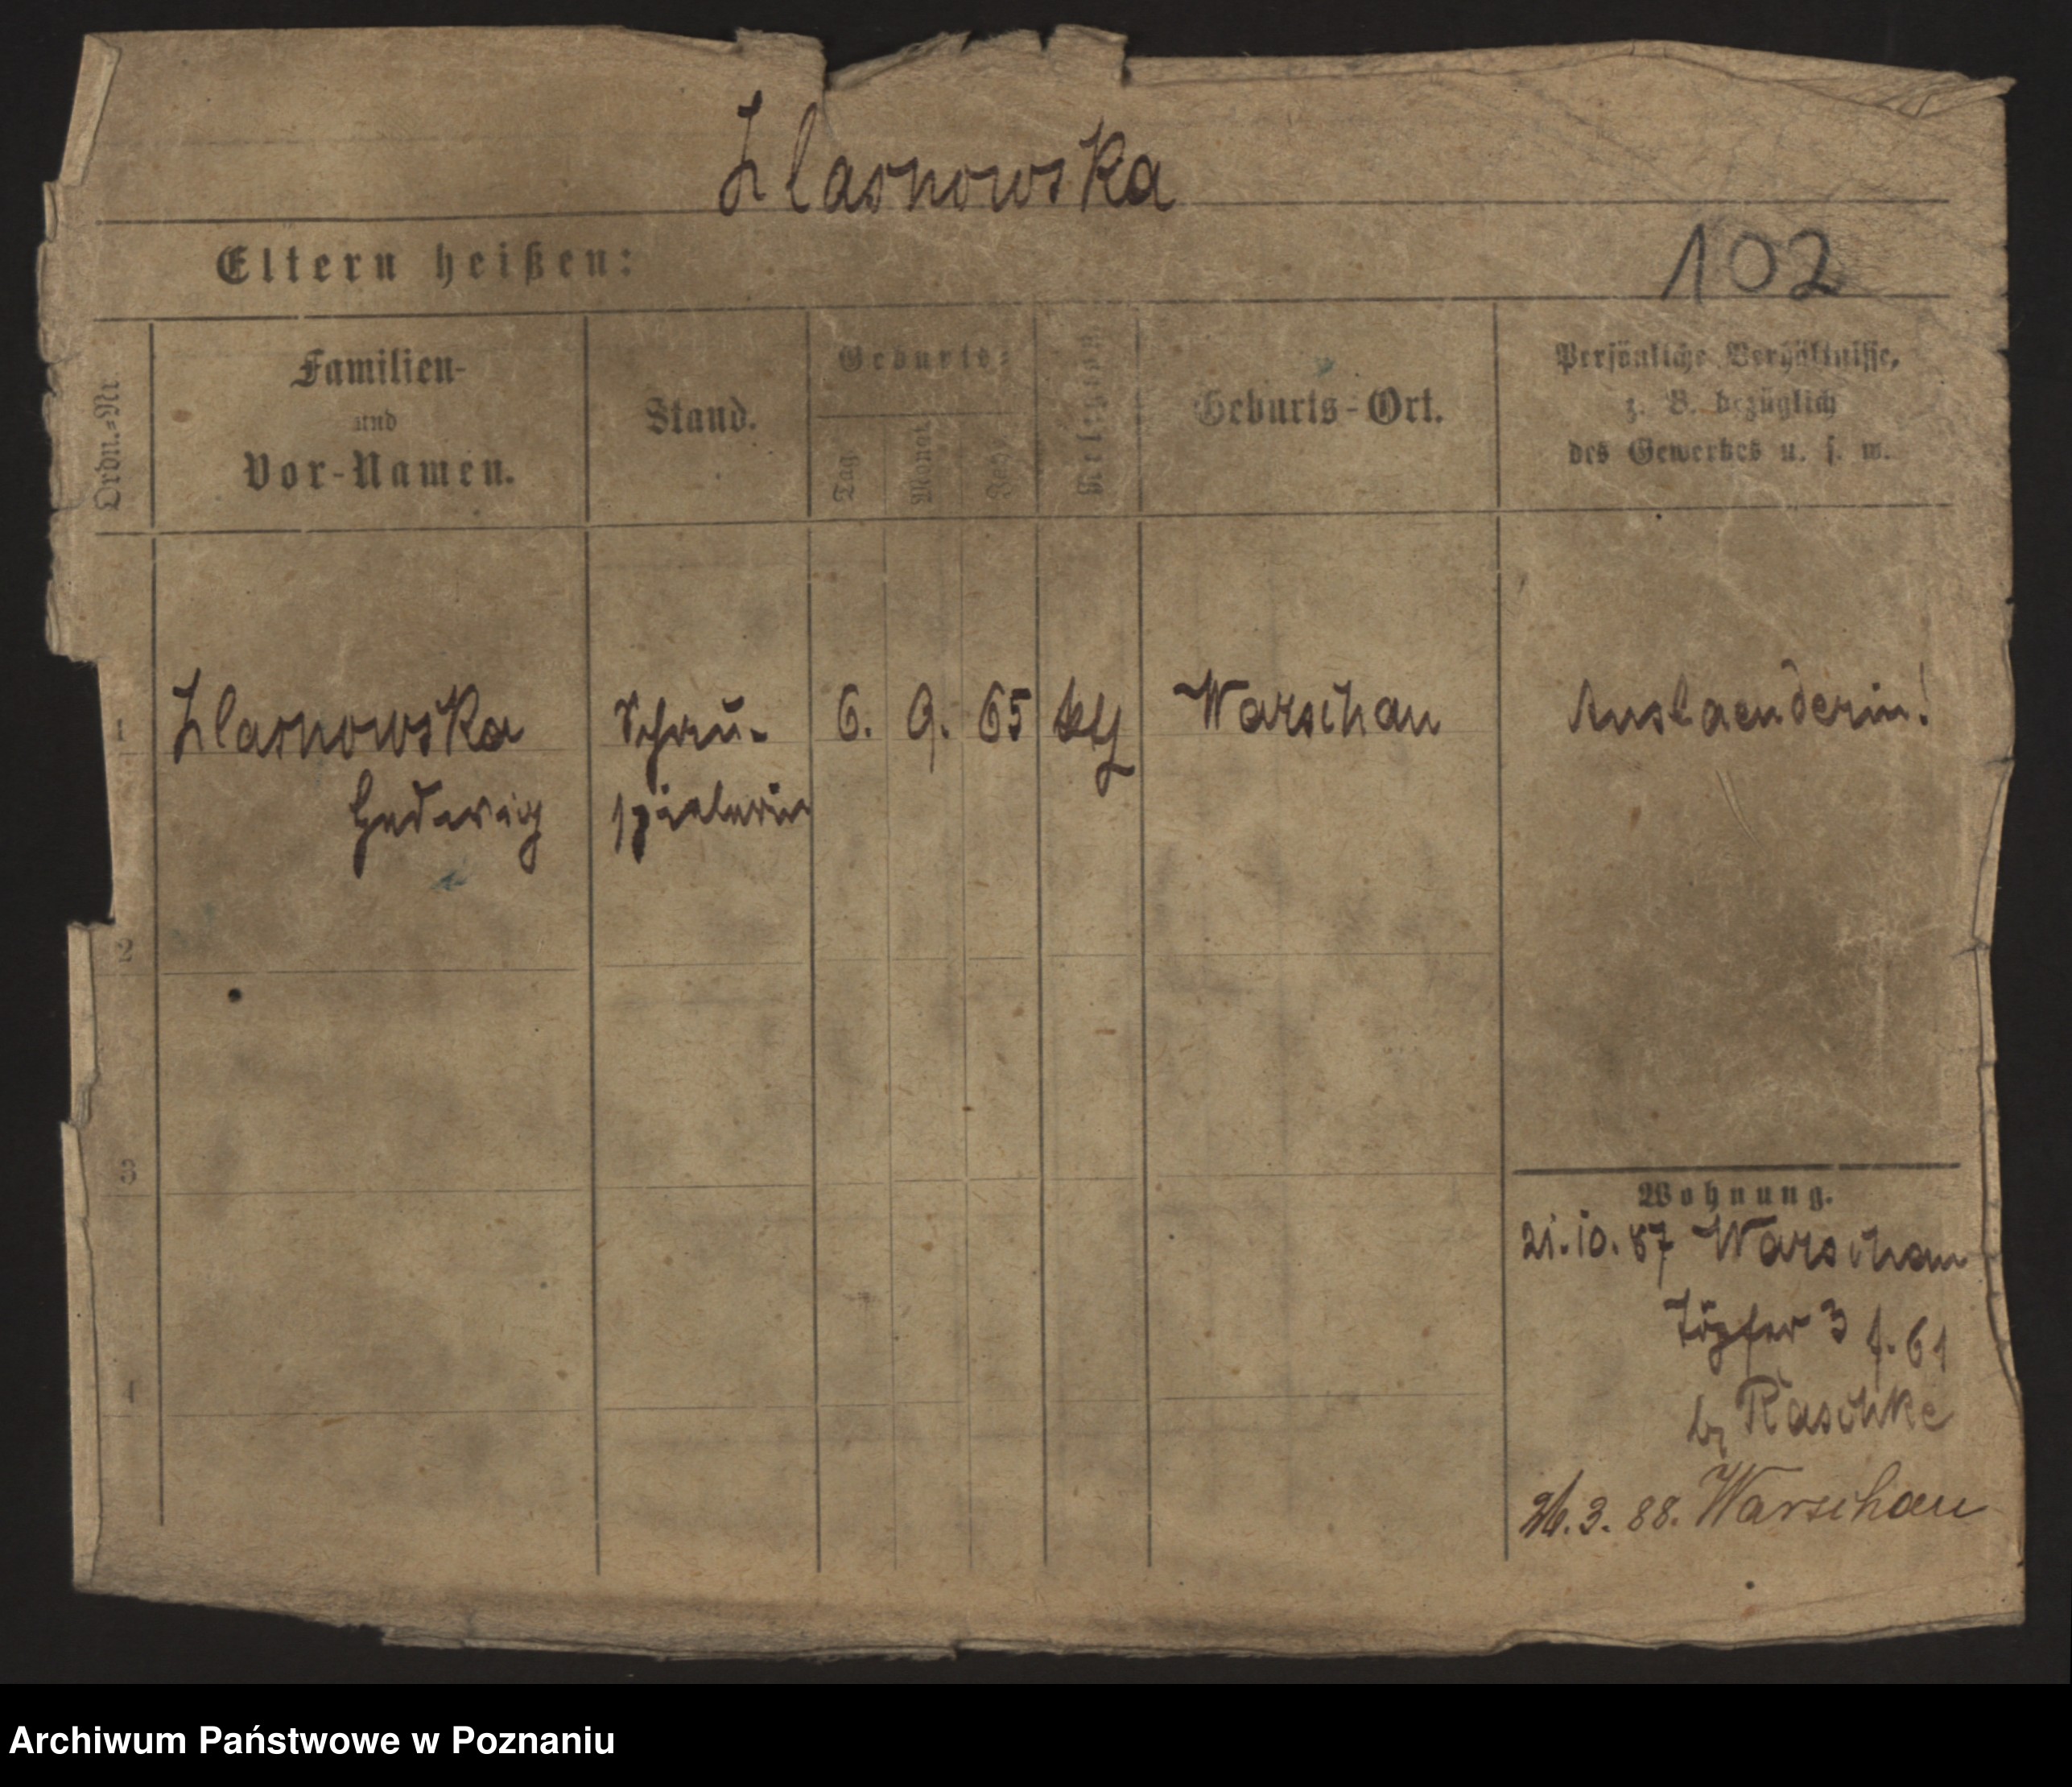 Zlasnowska
Eltern heißen:
102
Ordn.-Nr.
Familien-
und
Vor-Namen.
Stand.
Geburts-
Tag
Monat
Jahr
Religion
Geburts-Ort.
Persönliche Verhältnisse,
z. B. bezüglich
des Gewerbes u. s. w.
1 Zlasnowska Schau- 6. 9. 65 kth Warschau Auslaenderin!
Hedwig spielerin
2
3
4
Wohnung.
21.10.87 Warschau
Töpfer 3 f. 61
b/ Raschke
26.3.88. Warschau
Archiwum Państwowe w Poznaniu